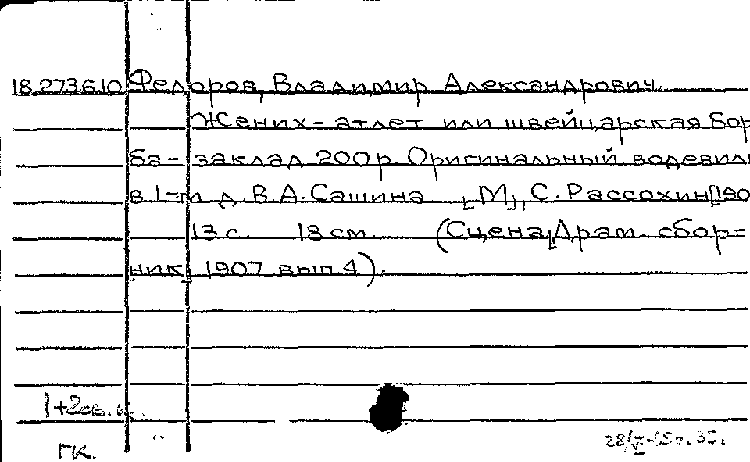 18.273.6.10 Федоров, Владимир Александрович.
Жених-атлет или швейцарская бор
ба- заклад 200 р. Оригинальный водевиль
в 1-м д. В.А. Сашина [М], С. Рассохин [190
13 с. 18 см. (Сцена. Драм. сбор=
ник, 1907 вып 4).
1+2
ГК.